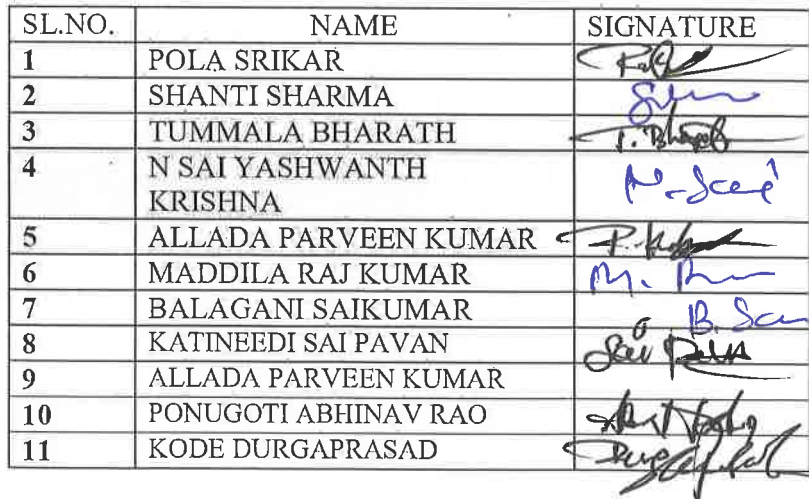 SL.NO. NAME SIGNATURE
1 POLA SRIKAR
2 SHANTI SHARMA
3 TUMMALA BHARATH T. Bharath
4 N SAI YASHWANTH
KRISHNA N. Sai
5 ALLADA PARVEEN KUMAR
6 MADDILA RAJ KUMAR M.
7 BALAGANI SAIKUMAR B. Sai
8 KATINEEDI SAI PAVAN Sai
9 ALLADA PARVEEN KUMAR
10 PONUGOTI ABHINAV RAO
11 KODE DURGAPRASAD